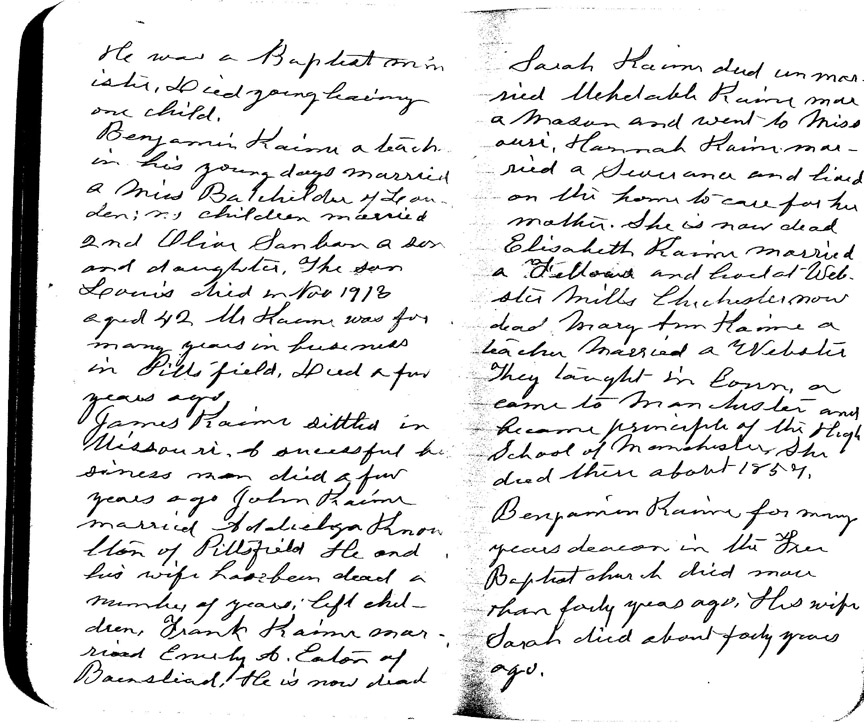 He was a Baptist min
ister, Died young leaving
one child.
Benjamin Kaime a teach
in his young days married
a Miss Batchilder of Lou-
den; no children married
2nd Olive Sanborn a son
and daughter. The son
Louis died in Nov 1918
aged 42 Mr Kaime was for
many years in business
in Pittsfield. Died a few
years ago.
James Kaime sittled in
Missouri. A successful bu
siness man died a few
years ago John Kaime
married Know
lton of Pittsfield He and
his wife has been dead a
number of years; left chil-
dren, Frank Kaime mar-
ried Emely A. Eaton of
Barnstead. He is now dead
Sarah Kaime died unmar-
ried Mehitable Kaime mar
a Mason and went to Miss
ouri, Hannah Kaime mar-
ried a Severance and lived
on the home to care for her
mother. She is now dead
Elisabeth Kaime married
a Fellows and lived at Web-
ster Mills Chichester now
dead Mary Ann Kaime a
teacher Married a Webster
They taught in Conn, or
came to Manchester and
became principle of the High
School of Manchester, She
died there about 1857.
Benjamin Kaime for many
years deacon in the Free
Baptist church died more
than forty years ago. His wife
Sarah died about forty years
ago.